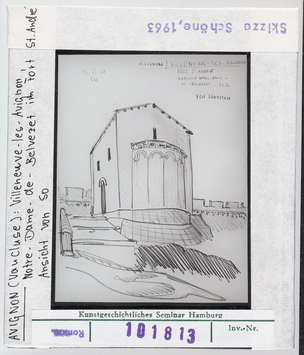 Skizze Schöne, 1963
AVIGNON (Vaucluse): Villeneuve-les-Avignon,
Notre-Dame-de-Belvezet im Fort St. André
Ansicht von SO
AVIGNON / VILLENEUVE-LES-AVIGNON
FORT ST ANDRÉ
Kunstgeschichtliches Seminar Hamburg
Roman.
101813
Inv.-Nr.